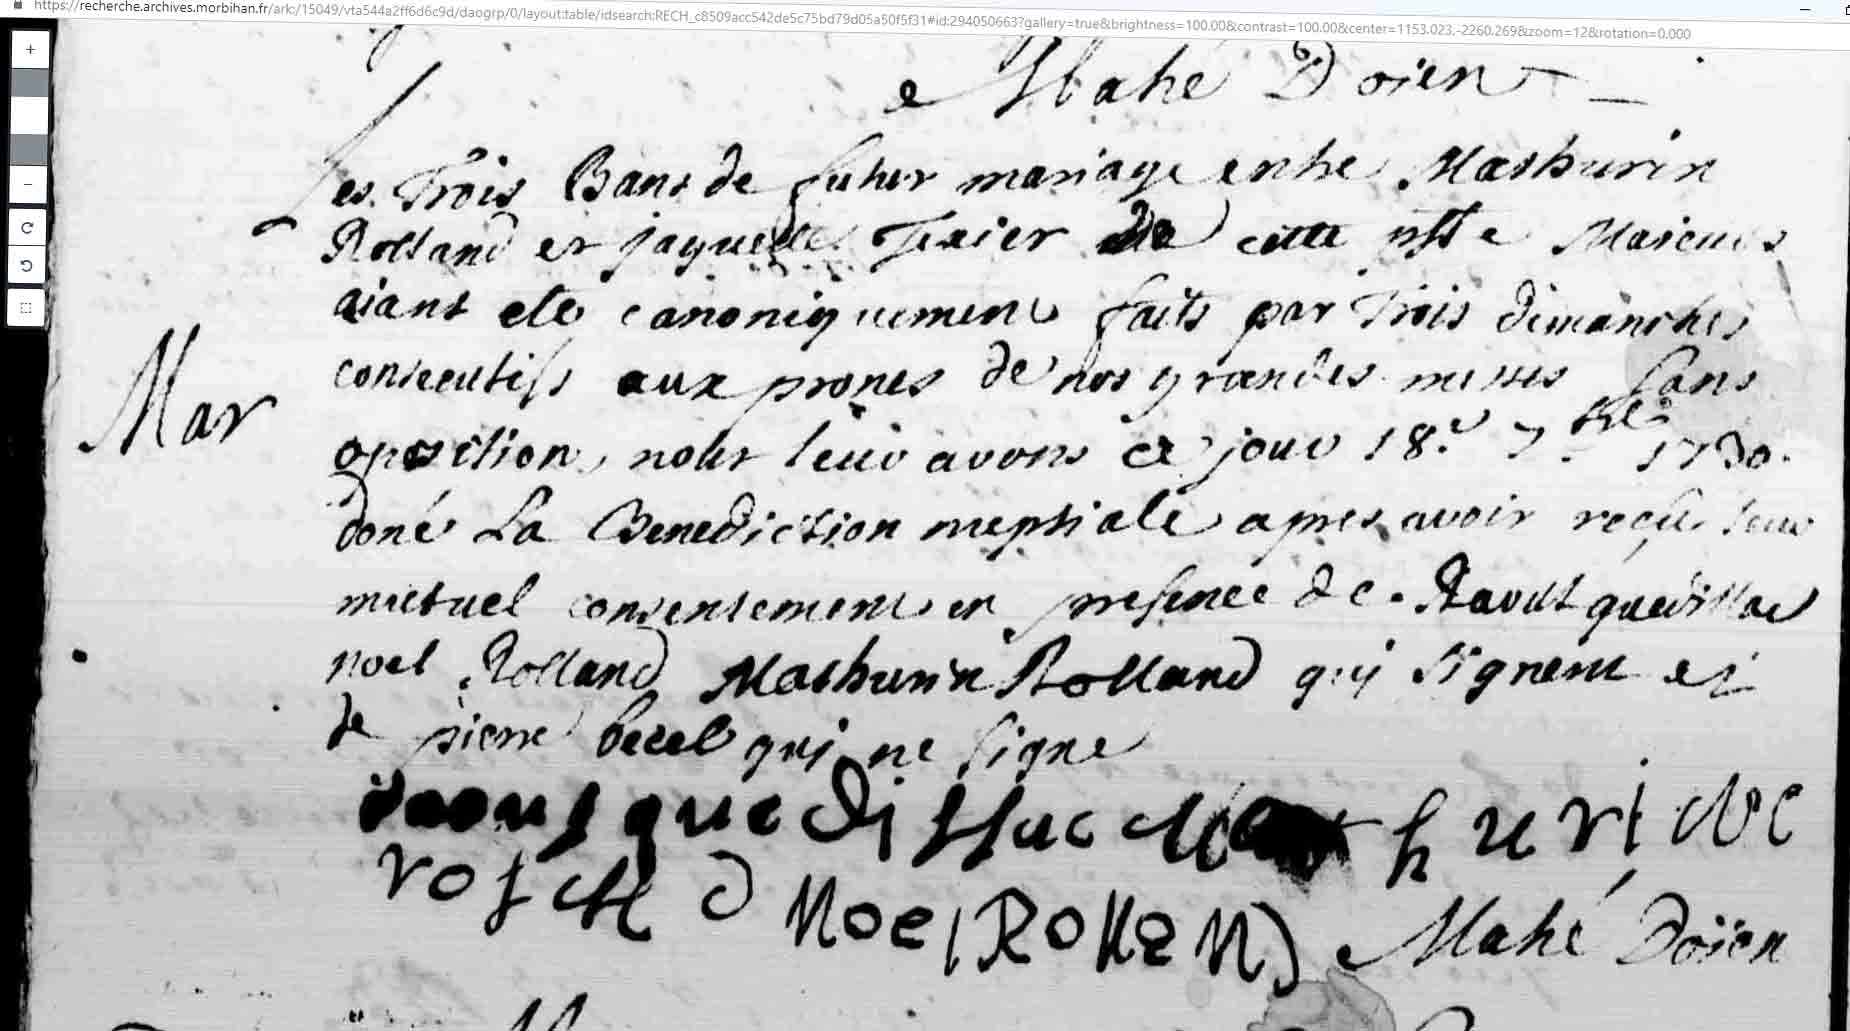 https://recherche.archives.morbihan.fr/ark:/15049/vta544a2ff6d6c9d/daogrp/0/layout:table/idsearch:RECH_c8509acc542de5c75bd79d05a50f5f31#id:294050663?gallery=true&brightness=100.00&contrast=100.00&center=1153.023,-2260.269&zoom=12&rotation=0.000
Mahé Doien
Les Trois Bans de futur mariage entre Mathurin
Rolland et jaquette Texier de cette psse
aiant ete canoniquement faits par Trois dimanches
consecutifs aux prones de nos grandes messes sans
oposition, nous leur avons ce jour 18.e 7.bre 1730.
Mar
doné La Benediction nuptiale apres avoir reçu leur
mutuel consentement en presence de Raoul quedillac
noel Rolland Mathurin Rolland qui signent et
de pierre becel qui ne signe
raoul quedillac Mathuri
Noel Rollan Mahé Doien